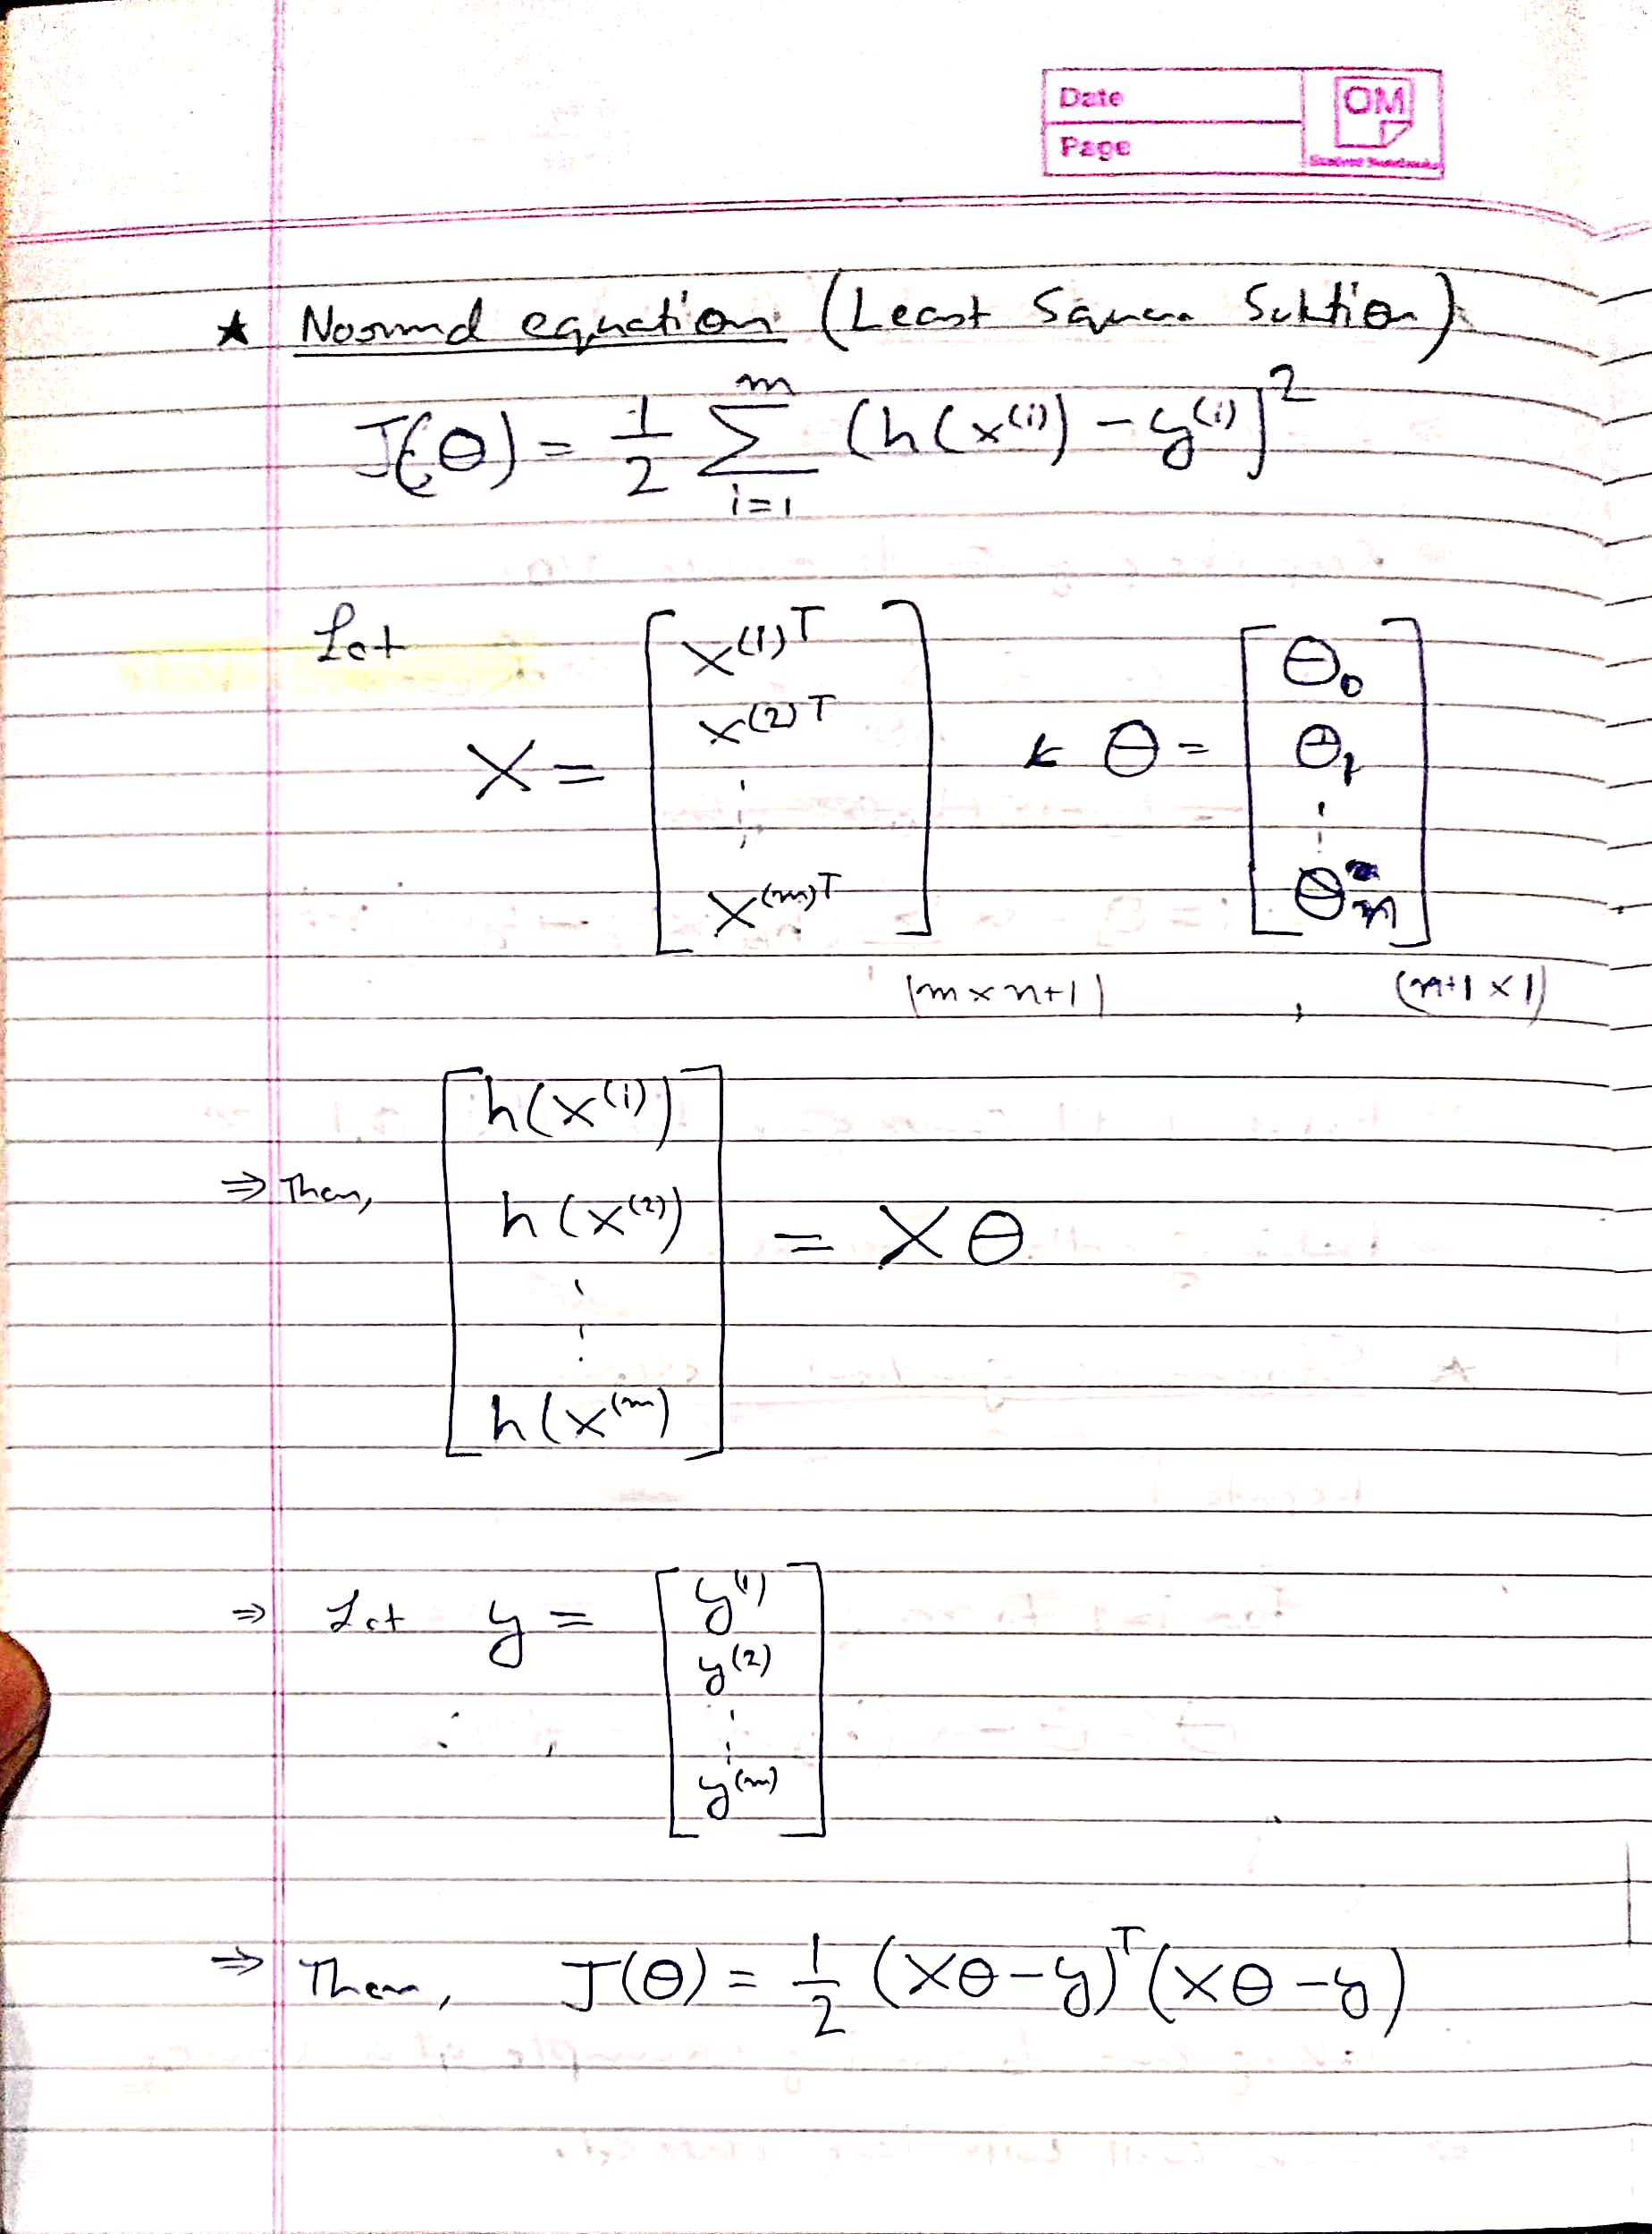 Date
OM
Page
★ Normal equation (Least Square Solution)
J(θ) = 1/2 Σ_{i=1}^{m} (h(x^(i)) - y^(i)]^2
Let
X = [x^(1)T x^(2)T ⋮ x^(m)T] & θ = [θ_0 θ_1 ⋮ θ_n]
(m × n+1) , (n+1 × 1)
⇒ Then, [h(x^(1)) h(x^(2)) ⋮ h(x^(m))] = Xθ
⇒ Let y = [y^(1) y^(2) ⋮ y^(m)]
⇒ Then, J(θ) = 1/2 (Xθ-y)^T (Xθ-y)